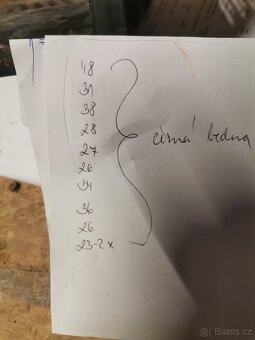 48
31
38
28
27
26
34
36
26
23-2x
černá bedna
© Bazos.cz